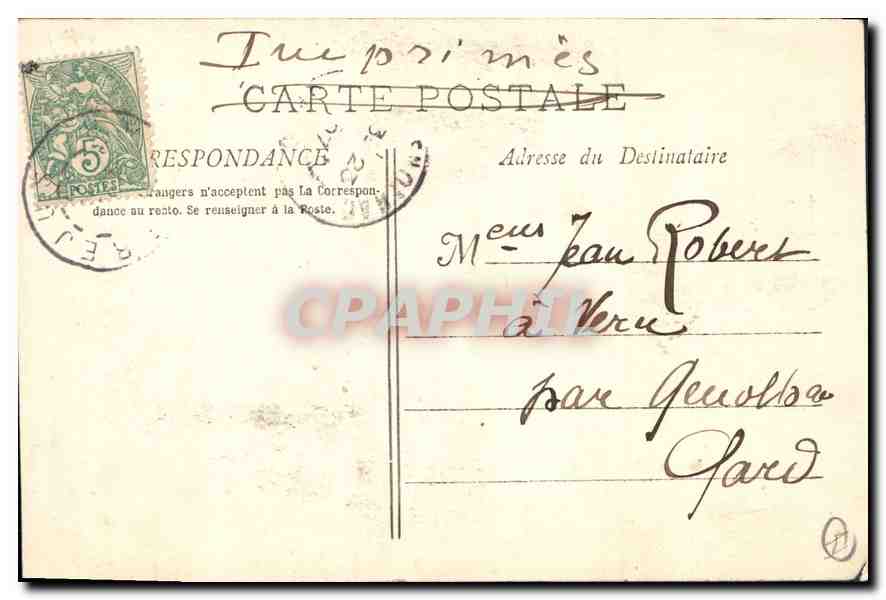 Imprimës
CARTE POSTALE
5c
POSTES
RESPONDANCE
rangers n'acceptent pas La Correspon-
dance au recto. Se renseigner à la Poste.
Adresse du Destinataire
Meus Jean Robert
à Vern
par Genolhac
Gard
CPAPHIL